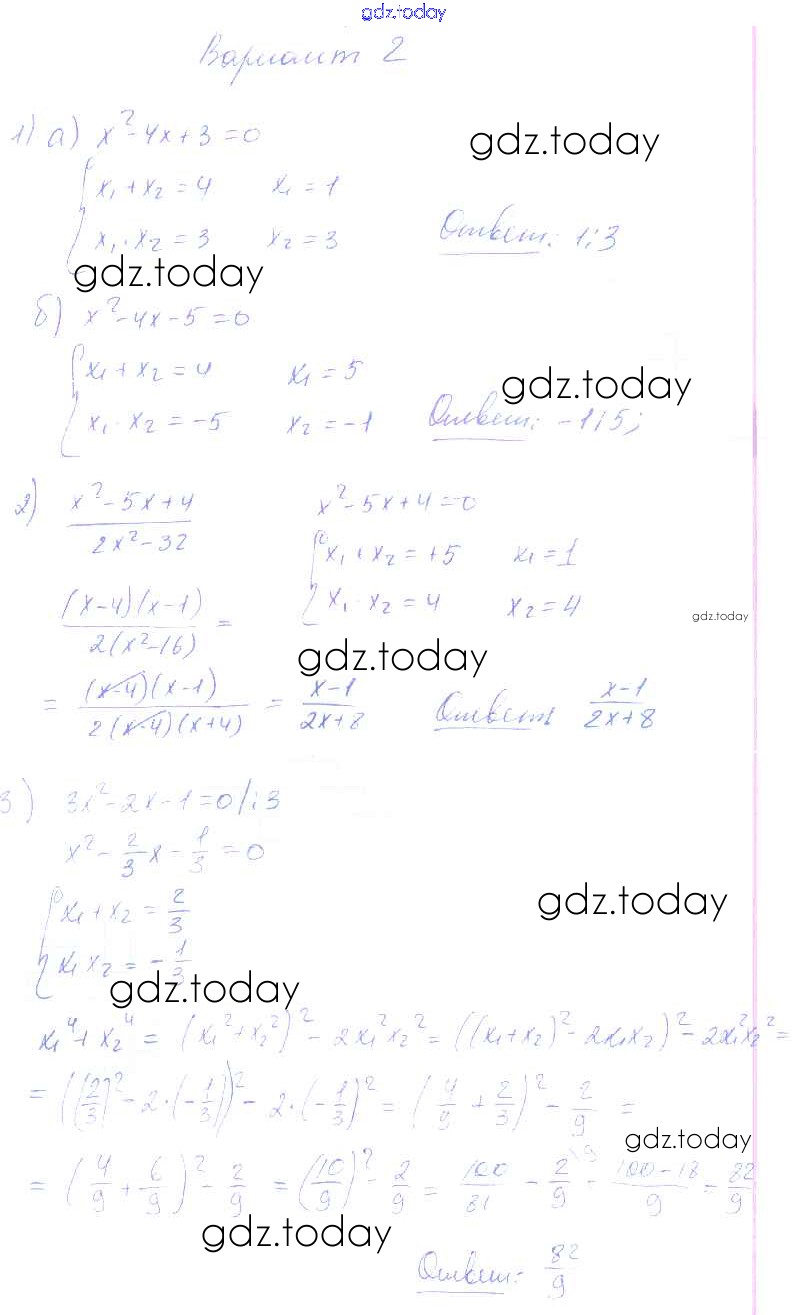 gdz.today
Вариант 2
1) а) x² - 4x + 3 = 0
gdz.today
{ x₁ + x₂ = 4 x₁ = 1
x₁ · x₂ = 3 x₂ = 3 Ответ: 1; 3
gdz.today
б) x² - 4x - 5 = 0
{ x₁ + x₂ = 4 x₁ = 5
gdz.today
x₁ · x₂ = -5 x₂ = -1 Ответ: -1; 5;
2) (x² - 5x + 4)/(2x² - 32) x² - 5x + 4 = 0
{ x₁ + x₂ = +5 x₁ = 1
x₁ · x₂ = 4 x₂ = 4
gdz.today
((x-4)(x-1))/(2(x²-16)) =
gdz.today
= ((x-4)(x-1))/(2(x-4)(x+4)) = (x-1)/(2x+8) Ответ: (x-1)/(2x+8)
3) 3x² - 2x - 1 = 0 /:3
x² - 2/3 x - 1/3 = 0
gdz.today
{ x₁ + x₂ = 2/3
x₁ x₂ = -1/3
gdz.today
x₁⁴ + x₂⁴ = (x₁² + x₂²)² - 2x₁²x₂² = ((x₁ + x₂)² - 2x₁x₂)² - 2x₁²x₂² =
= ((2/3)² - 2·(-1/3))² - 2·(-1/3)² = (4/9 + 2/3)² - 2/9 =
gdz.today
= (4/9 + 6/9)² - 2/9 = (10/9)² - 2/9 = 100/81 - 2/9 \9 = (100-18)/9 = 82/9
gdz.today
Ответ: 82/9